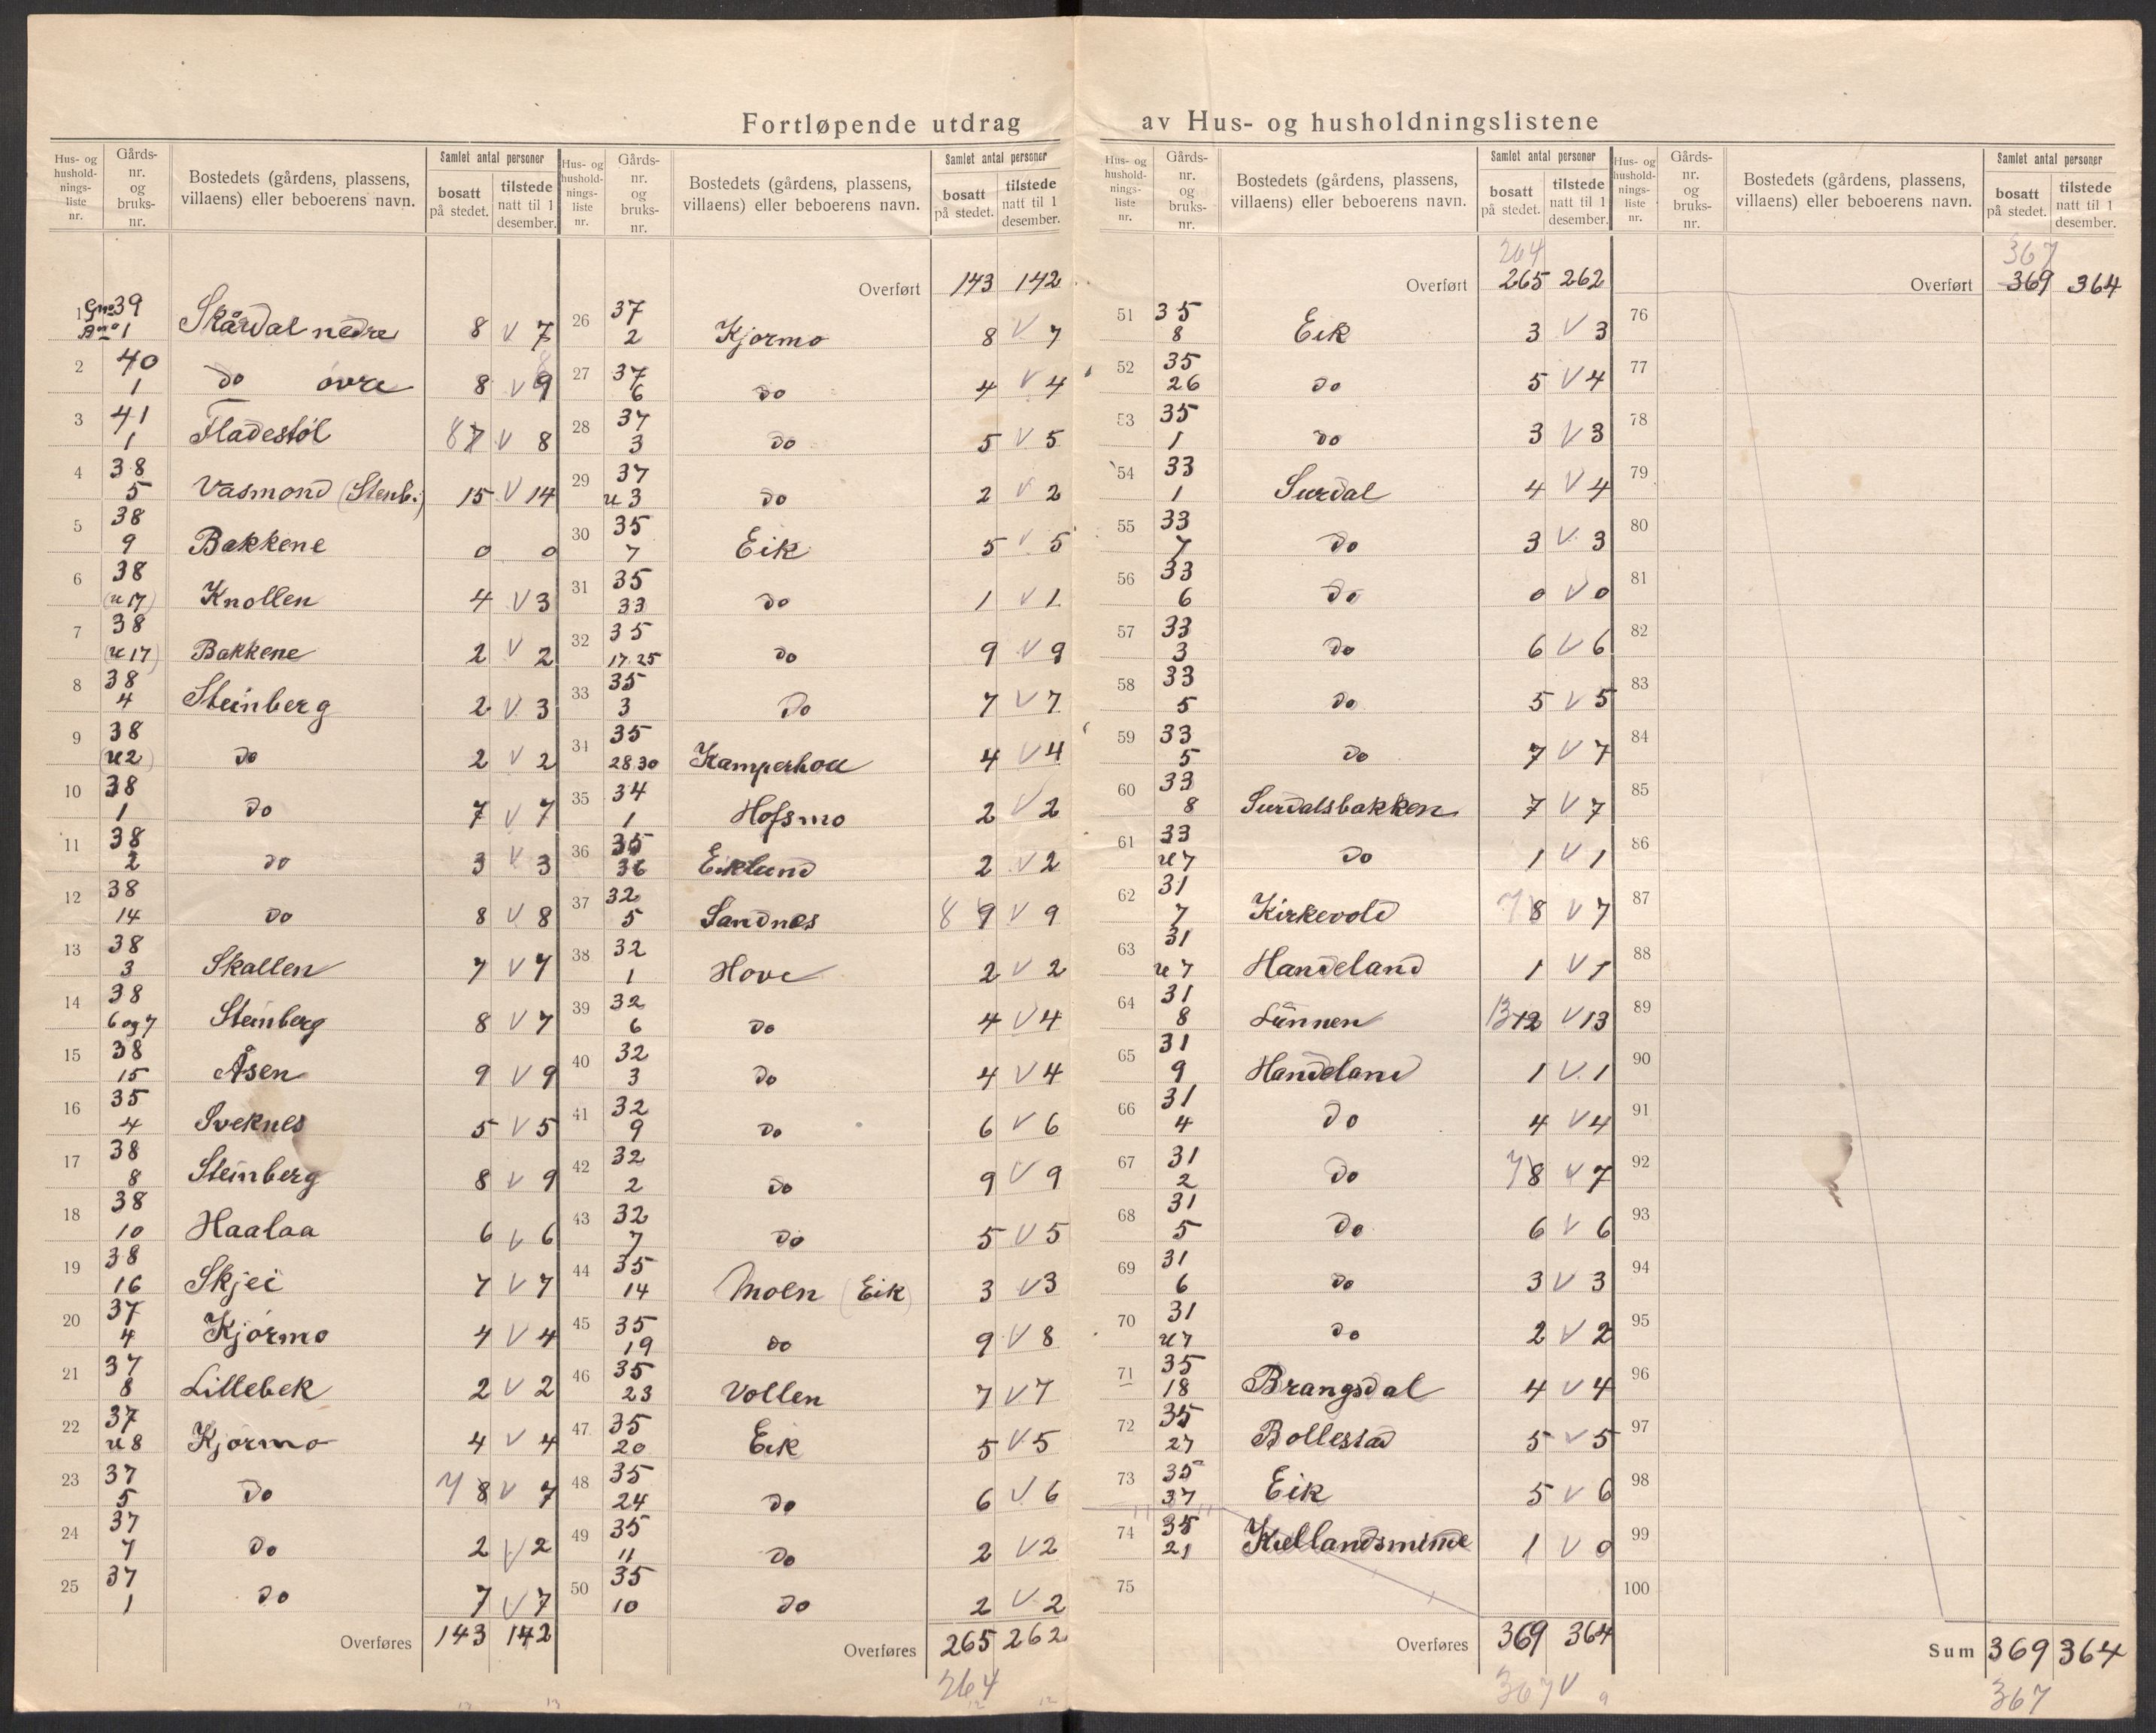 Fortløpende utdrag av Hus- og husholdningslistene
Hus- og hushold-nings-liste nr. Gårds-nr. og bruks-nr. Bostedets (gårdens, plassens, villaens) eller beboerens navn. Samlet antal personer bosatt på stedet. tilstede natt til 1 desember.
1 Gno 39 Bno 1 Skårdal nedre 8 V 7
2 40 1 do øvre 8 V 9 8
3 41 1 Fladestøl 8 7 V 8
4 38 5 Vasmond (Stenb.) 15 V 14
5 38 9 Bakkene 0 0
6 38 (u 17) Knollen 4 V 3
7 38 (u 17) Bakkene 2 V 2
8 38 4 Steinberg 2 V 3
9 38 (u 2) do 2 V 2
10 38 1 do 7 V 7
11 38 2 do 3 V 3
12 38 14 do 8 V 8
13 38 3 Skallen 7 V 7
14 38 6 og 7 Steinberg 8 V 7
15 38 15 Åsen 9 V 9
16 35 4 Sveknes 5 V 5
17 38 8 Steinberg 8 V 9
18 38 10 Haalaa 6 V 6
19 38 16 Skjei 7 V 7
20 37 4 Kjørmo 4 V 4
21 37 8 Lillebek 2 V 2
22 37 u 8 Kjørmo 4 V 4
23 37 5 do 7 8 V 7
24 37 7 do 2 V 2
25 37 1 do 7 V 7
Overføres 143 142
Hus- og hushold-nings-liste nr. Gårds-nr. og bruks-nr. Bostedets (gårdens, plassens, villaens) eller beboerens navn. Samlet antal personer bosatt på stedet. tilstede natt til 1 desember.
Overført 143 142
26 37 2 Kjørmo 8 V 7
27 37 6 do 4 V 4
28 37 3 do 5 V 5
29 37 u 3 do 2 V 2
30 35 7 Eik 5 V 5
31 35 33 do 1 V 1
32 35 17.25 do 9 V 9
33 35 3 do 7 V 7
34 35 28.30 Kamperhou 4 V 4
35 34 1 Hofsmo 2 V 2
36 35 36 Eiklund 2 V 2
37 32 5 Sandnes 8 9 V 9
38 32 1 Hove 2 V 2
39 32 6 do 4 V 4
40 32 3 do 4 V 4
41 32 9 do 6 V 6
42 32 2 do 9 V 9
43 32 7 do 5 V 5
44 35 14 Moen (Eik) 3 V 3
45 35 19 do 9 V 8
46 35 23 Vollen 7 V 7
47 35 20 Eik 5 V 5
48 35 24 do 6 V 6
49 35 11 do 2 V 2
50 35 10 do 2 V 2
Overføres 265 262
264
Hus- og hushold-nings-liste nr. Gårds-nr. og bruks-nr. Bostedets (gårdens, plassens, villaens) eller beboerens navn. Samlet antal personer bosatt på stedet. tilstede natt til 1 desember.
264
Overført 265 262
51 35 8 Eik 3 V 3
52 35 26 do 5 V 4
53 35 1 do 3 V 3
54 33 1 Surdal 4 V 4
55 33 7 do 3 V 3
56 33 6 do 0 V 0
57 33 3 do 6 V 6
58 33 5 do 5 V 5
59 33 5 do 7 V 7
60 33 8 Surdalsbakken 7 V 7
61 33 u 7 do 1 V 1
62 31 7 Kirkevold 7 8 V 7
63 31 u 7 Handeland 1 V 1
64 31 8 Lunnen 13 12 V 13
65 31 9 Handeland 1 V 1
66 31 4 do 4 V 4
67 31 2 do 7 8 V 7
68 31 5 do 6 V 6
69 31 6 do 3 V 3
70 31 u 7 do 2 V 2
71 35 18 Brangsdal 4 V 4
72 35 27 Bollestad 5 V 5
73 35 37 Eik 5 V 6
74 35 21 Kiellandsminde 1 V 0
75
Overføres 369 364
367 V
Hus- og hushold-nings-liste nr. Gårds-nr. og bruks-nr. Bostedets (gårdens, plassens, villaens) eller beboerens navn. Samlet antal personer bosatt på stedet. tilstede natt til 1 desember.
367
Overført 369 364
76
77
78
79
80
81
82
83
84
85
86
87
88
89
90
91
92
93
94
95
96
97
98
99
100
Sum 369 364
367